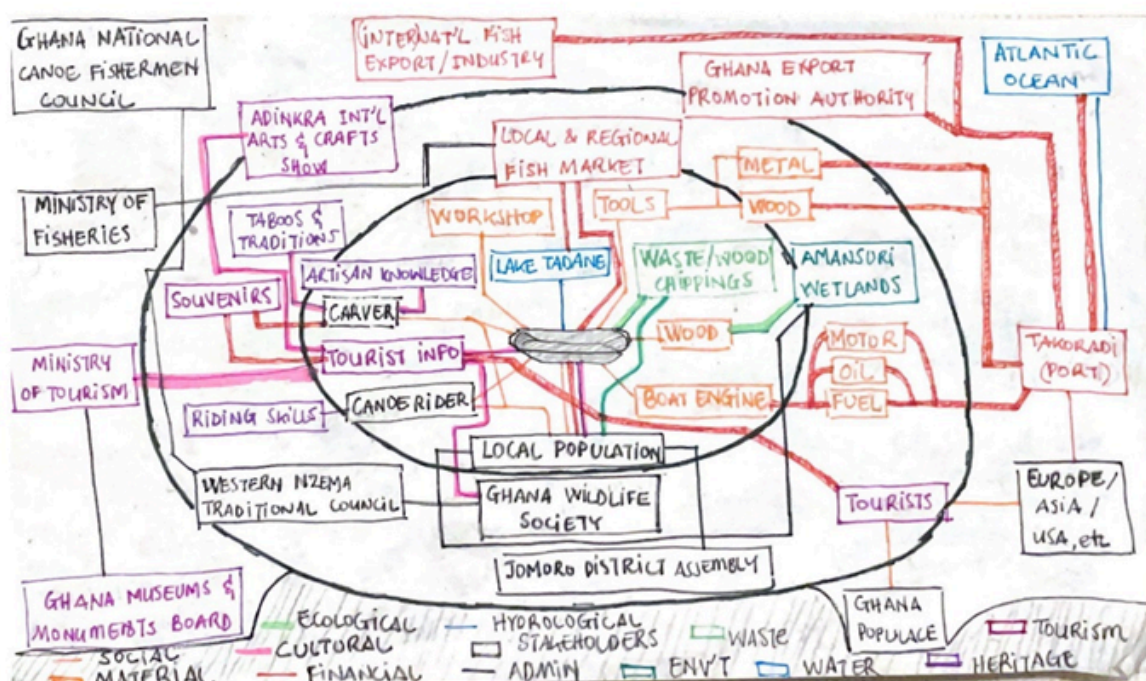 GHANA NATIONAL
CANOE FISHERMEN
COUNCIL
INTERNAT'L FISH
EXPORT/INDUSTRY
GHANA EXPORT
PROMOTION AUTHORITY
ATLANTIC
OCEAN
ADINKRA INT'L
ARTS & CRAFTS
SHOW
LOCAL & REGIONAL
FISH MARKET
METAL
MINISTRY OF
FISHERIES
TABOOS &
TRADITIONS
WORKSHOP
TOOLS
WOOD
ARTISAN KNOWLEDGE
LAKE TADANE
WASTE/WOOD
CHIPPINGS
AMANSURI
WETLANDS
SOUVENIRS
CARVER
WOOD
MOTOR
MINISTRY
OF TOURISM
TOURIST INFO
OIL
TAKORADI
(PORT)
RIDING SKILLS
CANOE RIDER
BOAT ENGINE
FUEL
LOCAL POPULATION
WESTERN NZEMA
TRADITIONAL COUNCIL
GHANA WILDLIFE
SOCIETY
TOURISTS
EUROPE/
ASIA/
USA, etc
JOMORO DISTRICT ASSEMBLY
GHANA MUSEUMS &
MONUMENTS BOARD
GHANA
POPULACE
ECOLOGICAL
HYDROLOGICAL
WASTE
TOURISM
SOCIAL
CULTURAL
STAKEHOLDERS
MATERIAL
FINANCIAL
ADMIN
ENV'T
WATER
HERITAGE